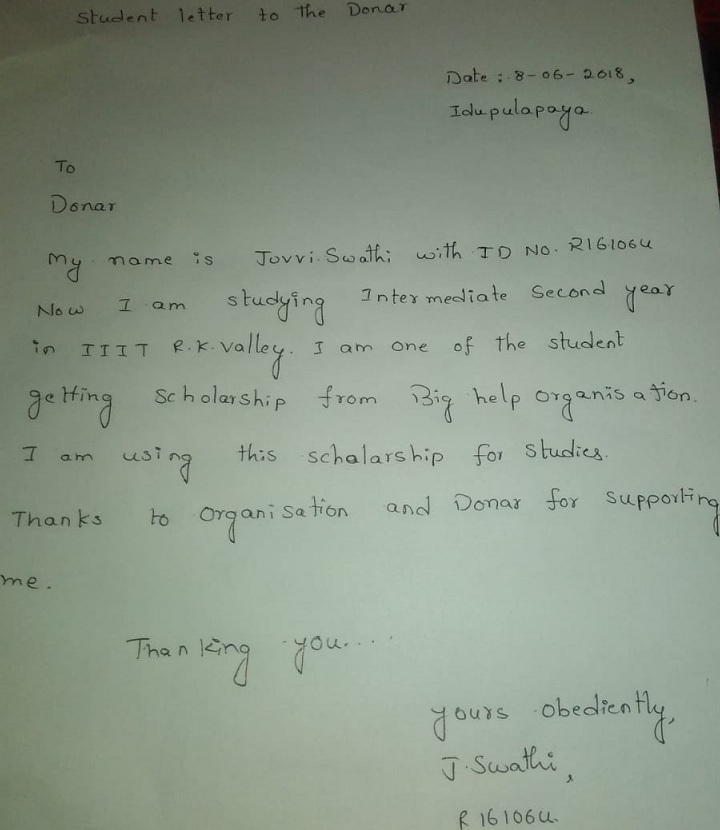 Student letter to the Donar
Date : 8-06-2018,
Idupulapaya.
To
Donar
My name is Jovvi.Swathi with ID NO. R161064
Now I am studying Intermediate Second year
in IIIT R.K.valley. I am one of the student
getting Scholarship from Big help organisation.
I am using this scholarship for studies.
Thanks to organisation and Donar for supporting
me.
Thanking you....
yours obediently,
J.Swathi,
R161064.